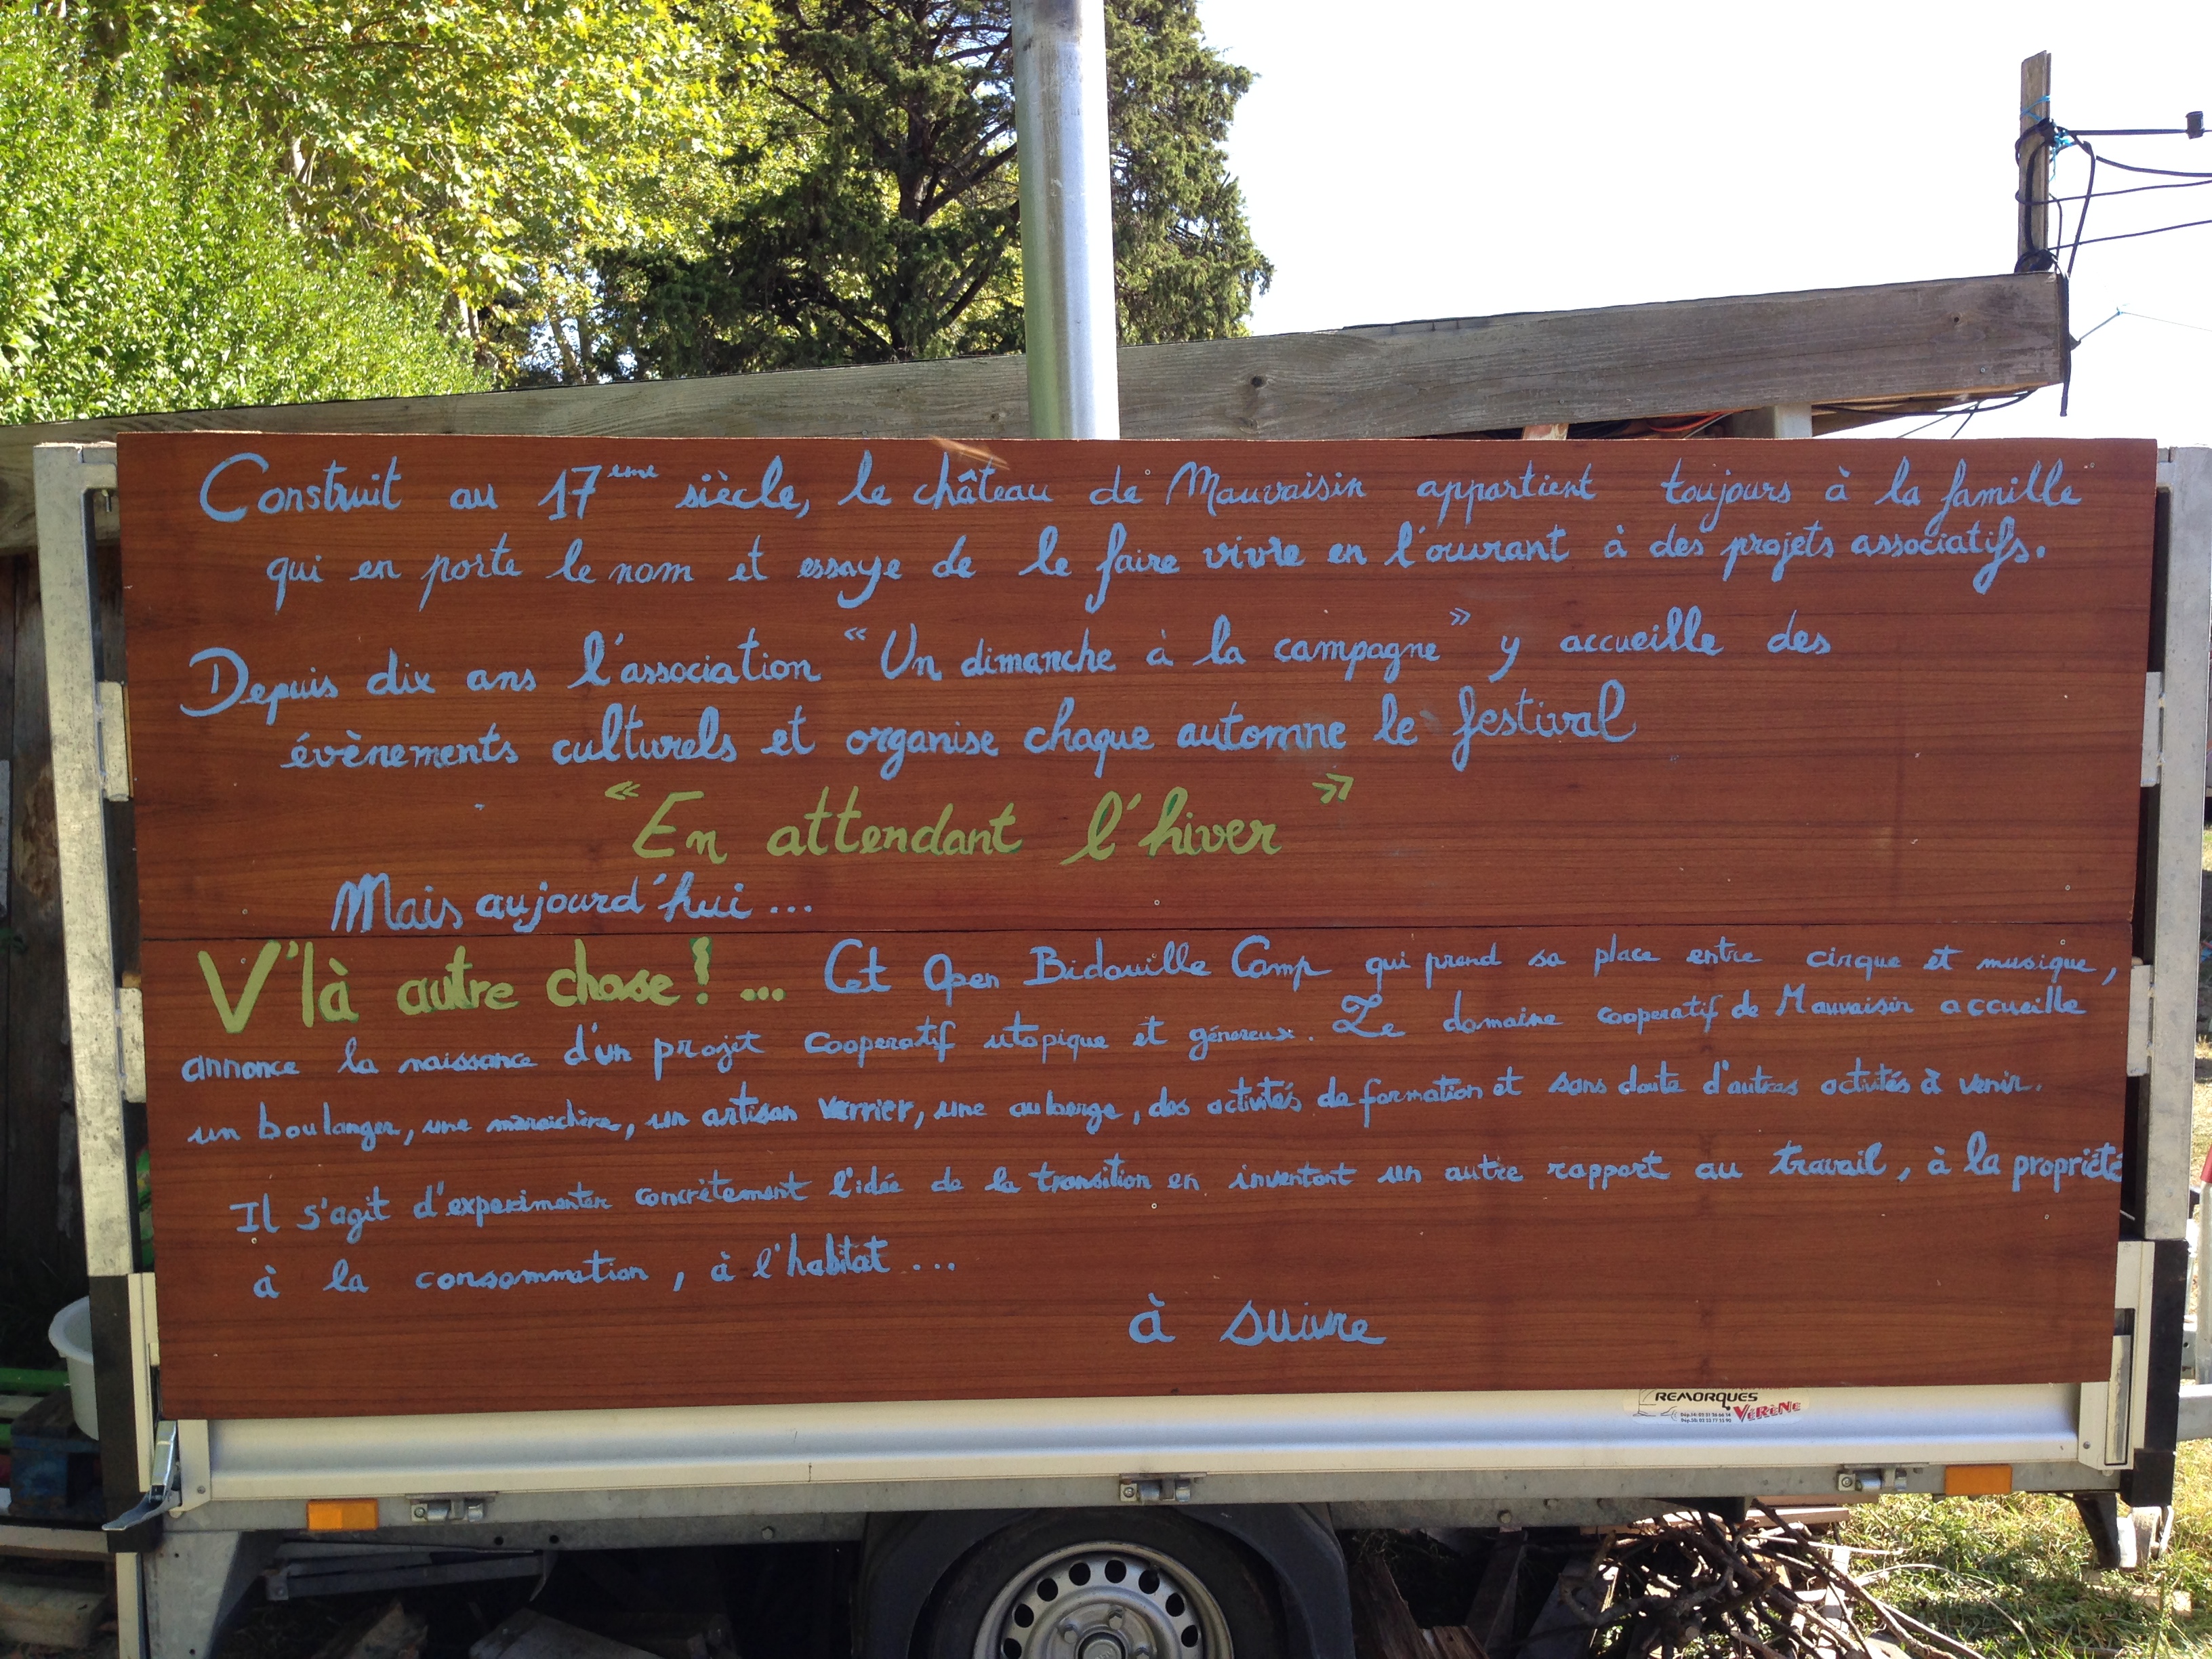 Construit au 17ème siècle, le château de Mauvaisin appartient toujours à la famille
qui en porte le nom et essaye de le faire vivre en l'ouvrant à des projets associatifs.
Depuis dix ans l'association « Un dimanche à la campagne » y accueille des
évènements culturels et organise chaque automne le festival
« En attendant l'hiver »
Mais aujourd'hui...
V'là autre chose ! ... Cet Open Bidouille Camp qui prend sa place entre cirque et musique,
annonce la naissance d'un projet cooperatif utopique et génereux. Le domaine cooperatif de Mauvaisin accueille
un boulanger, une maraichère, un artisan verrier, une auberge, des activités de formation et sans doute d'autres activités à venir.
Il s'agit d'experimenter concrètement l'idée de la transition en inventant un autre rapport au travail, à la propriété
à la consommation, à l'habitat ...
à suivre
REMORQUES
VéRèNe